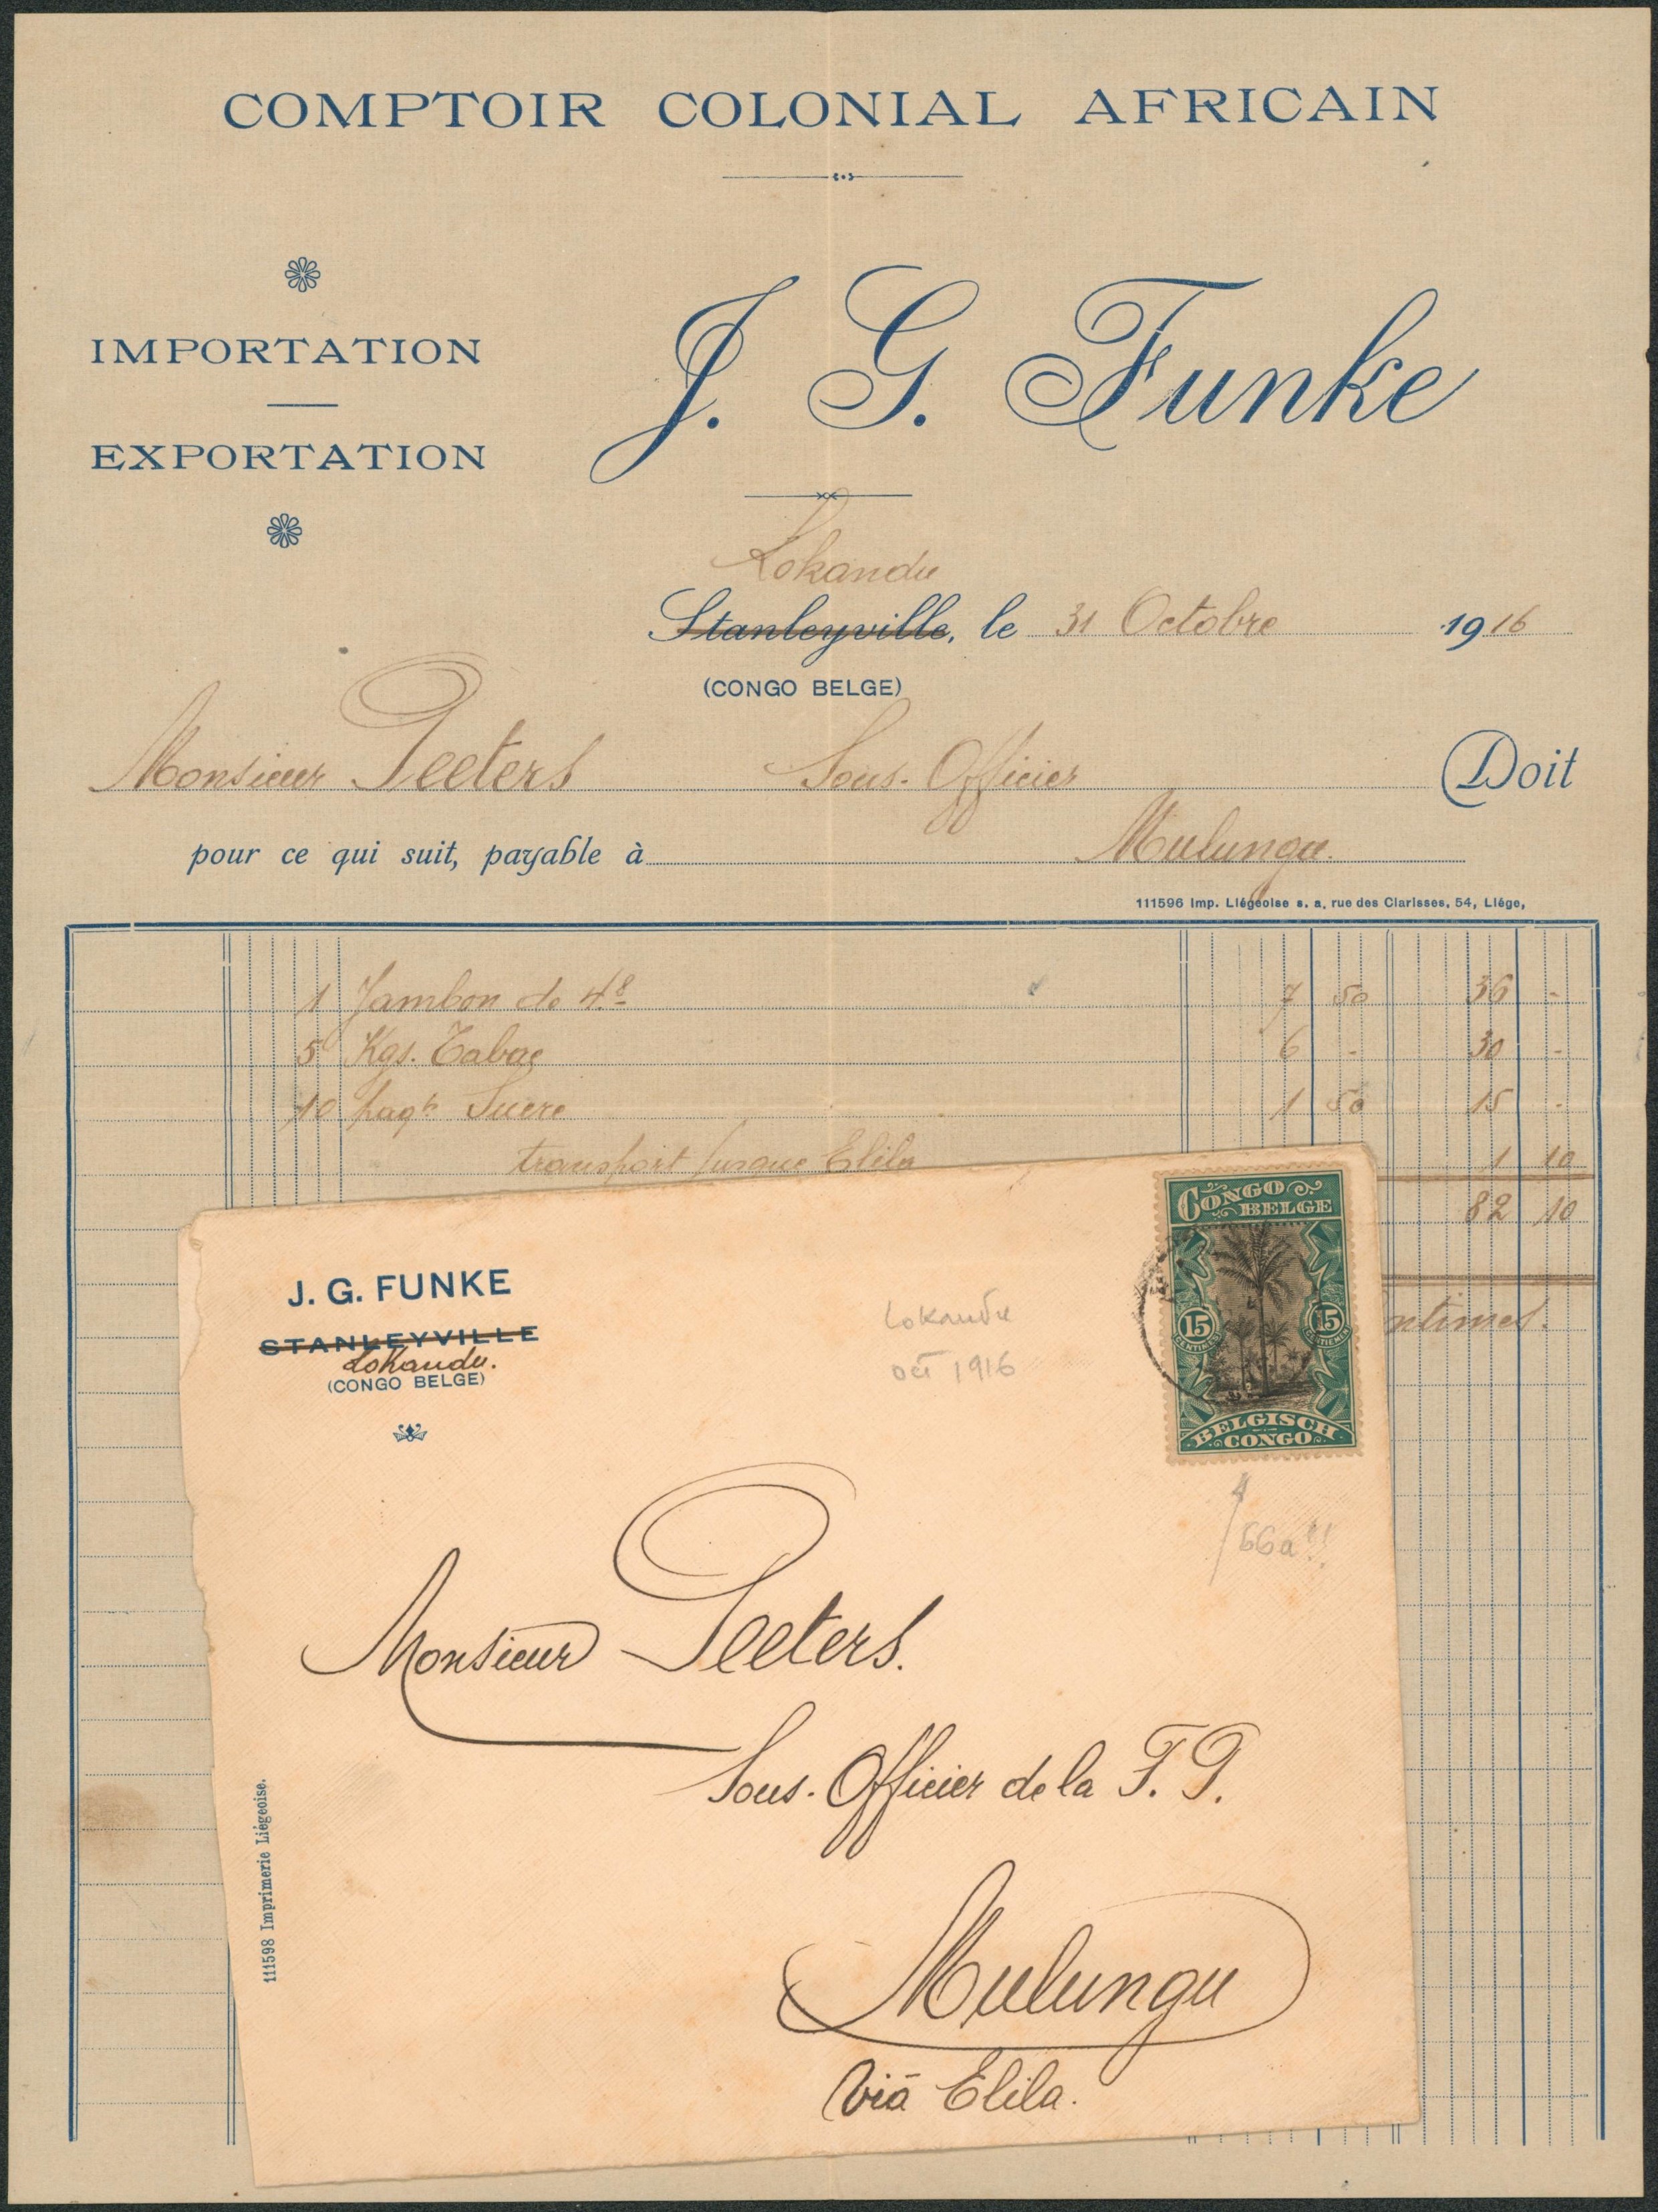 COMPTOIR COLONIAL AFRICAIN
IMPORTATION
EXPORTATION
J. G. Funke
Lokandu
Stanleyville, le 31 Octobre 1916
(CONGO BELGE)
Monsieur Peeters Sous-Officier Doit
pour ce qui suit, payable à Mulungu.
111596 Imp. Liégeoise s. a. rue des Clarisses, 54, Liége,
1 Jambon de 4.8 7 50 36 -
5 Kgs. Tabac 6 - 30 -
10 paqts Sucre 1 50 15 -
transport jusque Elila 1 10
82 10
ntimes.
J. G. FUNKE
STANLEYVILLE
Lokandu.
(CONGO BELGE)
Lokandu
oct 1916
CONGO BELGE
15 CENTIMES
15 CENTIEMEN
BELGISCH CONGO
66a!!
Monsieur Peeters.
Sous-Officier de la F. P.
Mulungu
Viâ Elila.
111598 Imprimerie Liégeoise.